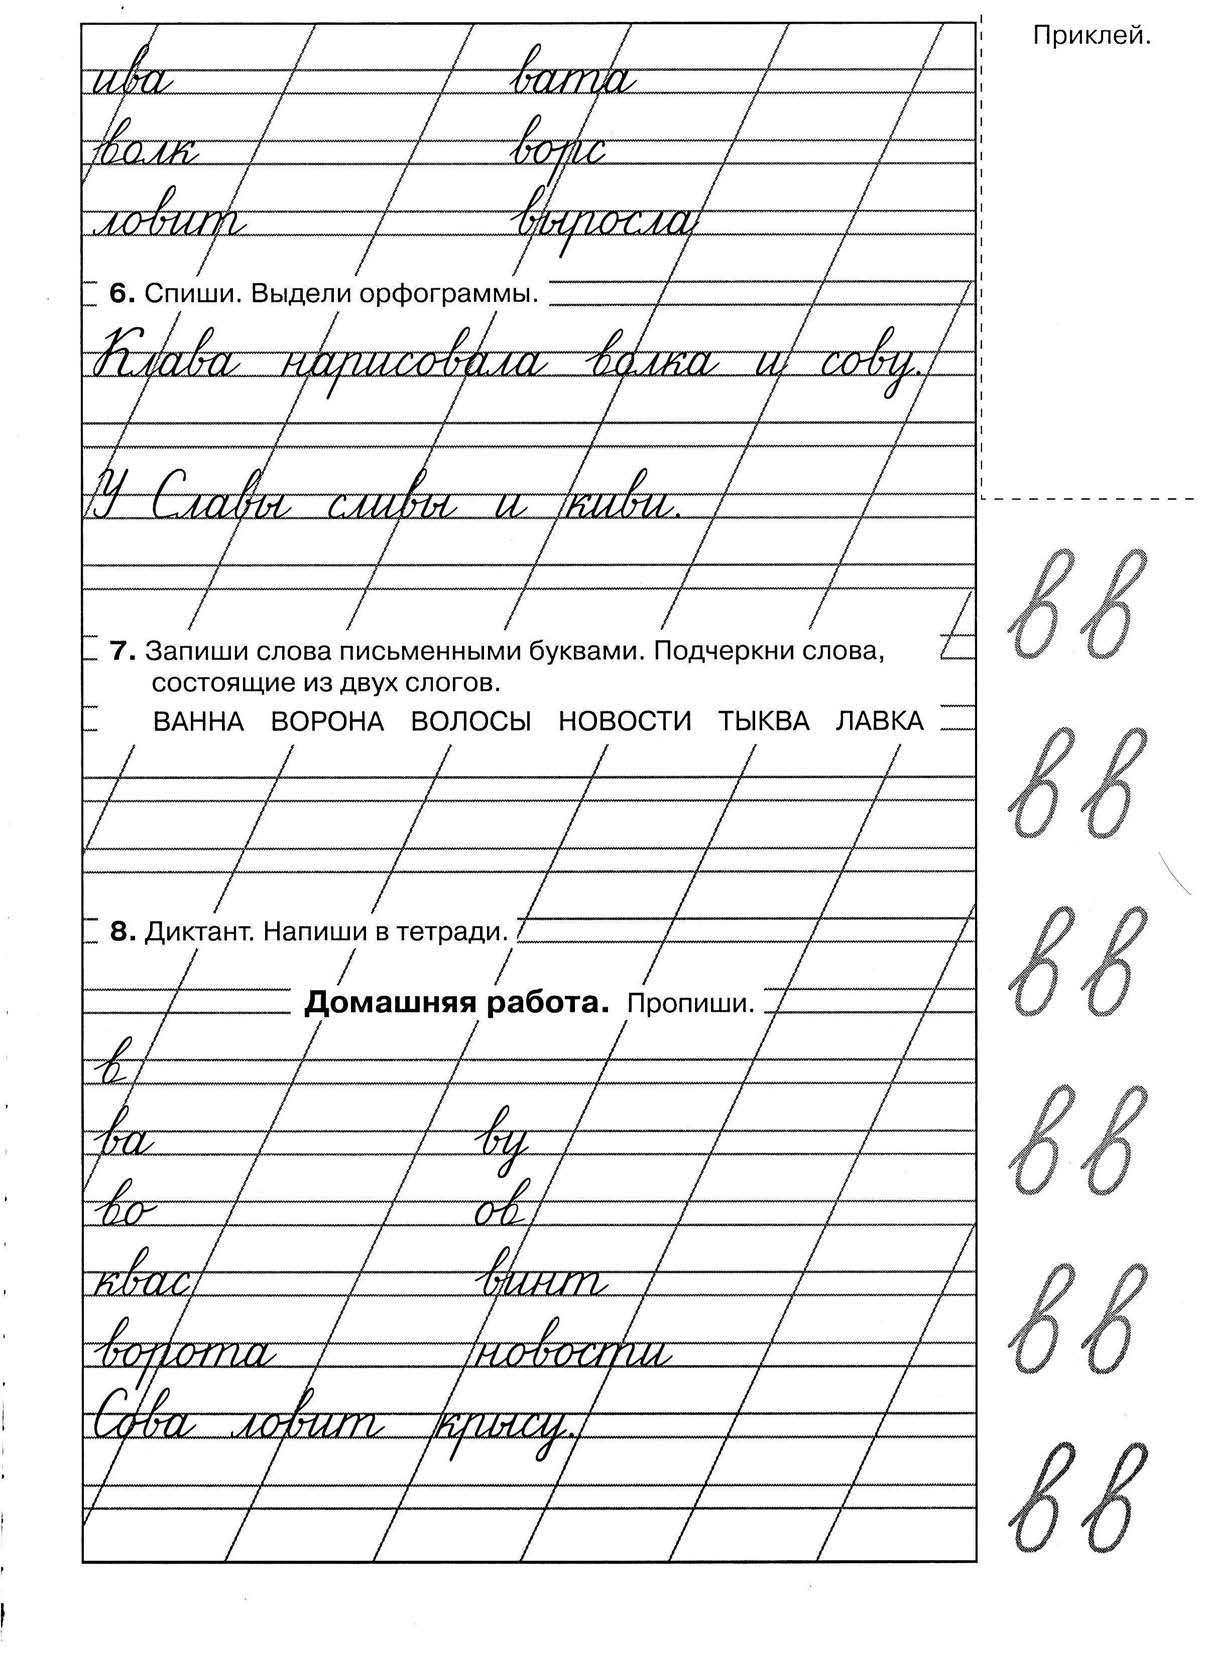 Приклей.
ива вата
волк ворс
ловит выросла
6. Спиши. Выдели орфограммы.
Клава нарисовала волка и сову.
У Славы сливы и киви.
7. Запиши слова письменными буквами. Подчеркни слова,
состоящие из двух слогов.
ВАННА ВОРОНА ВОЛОСЫ НОВОСТИ ТЫКВА ЛАВКА
8. Диктант. Напиши в тетради.
Домашняя работа. Пропиши.
в
ва ву
во ов
квас винт
ворота новости
Сова ловит крысу.
в в
в в
в в
в в
в в
в в